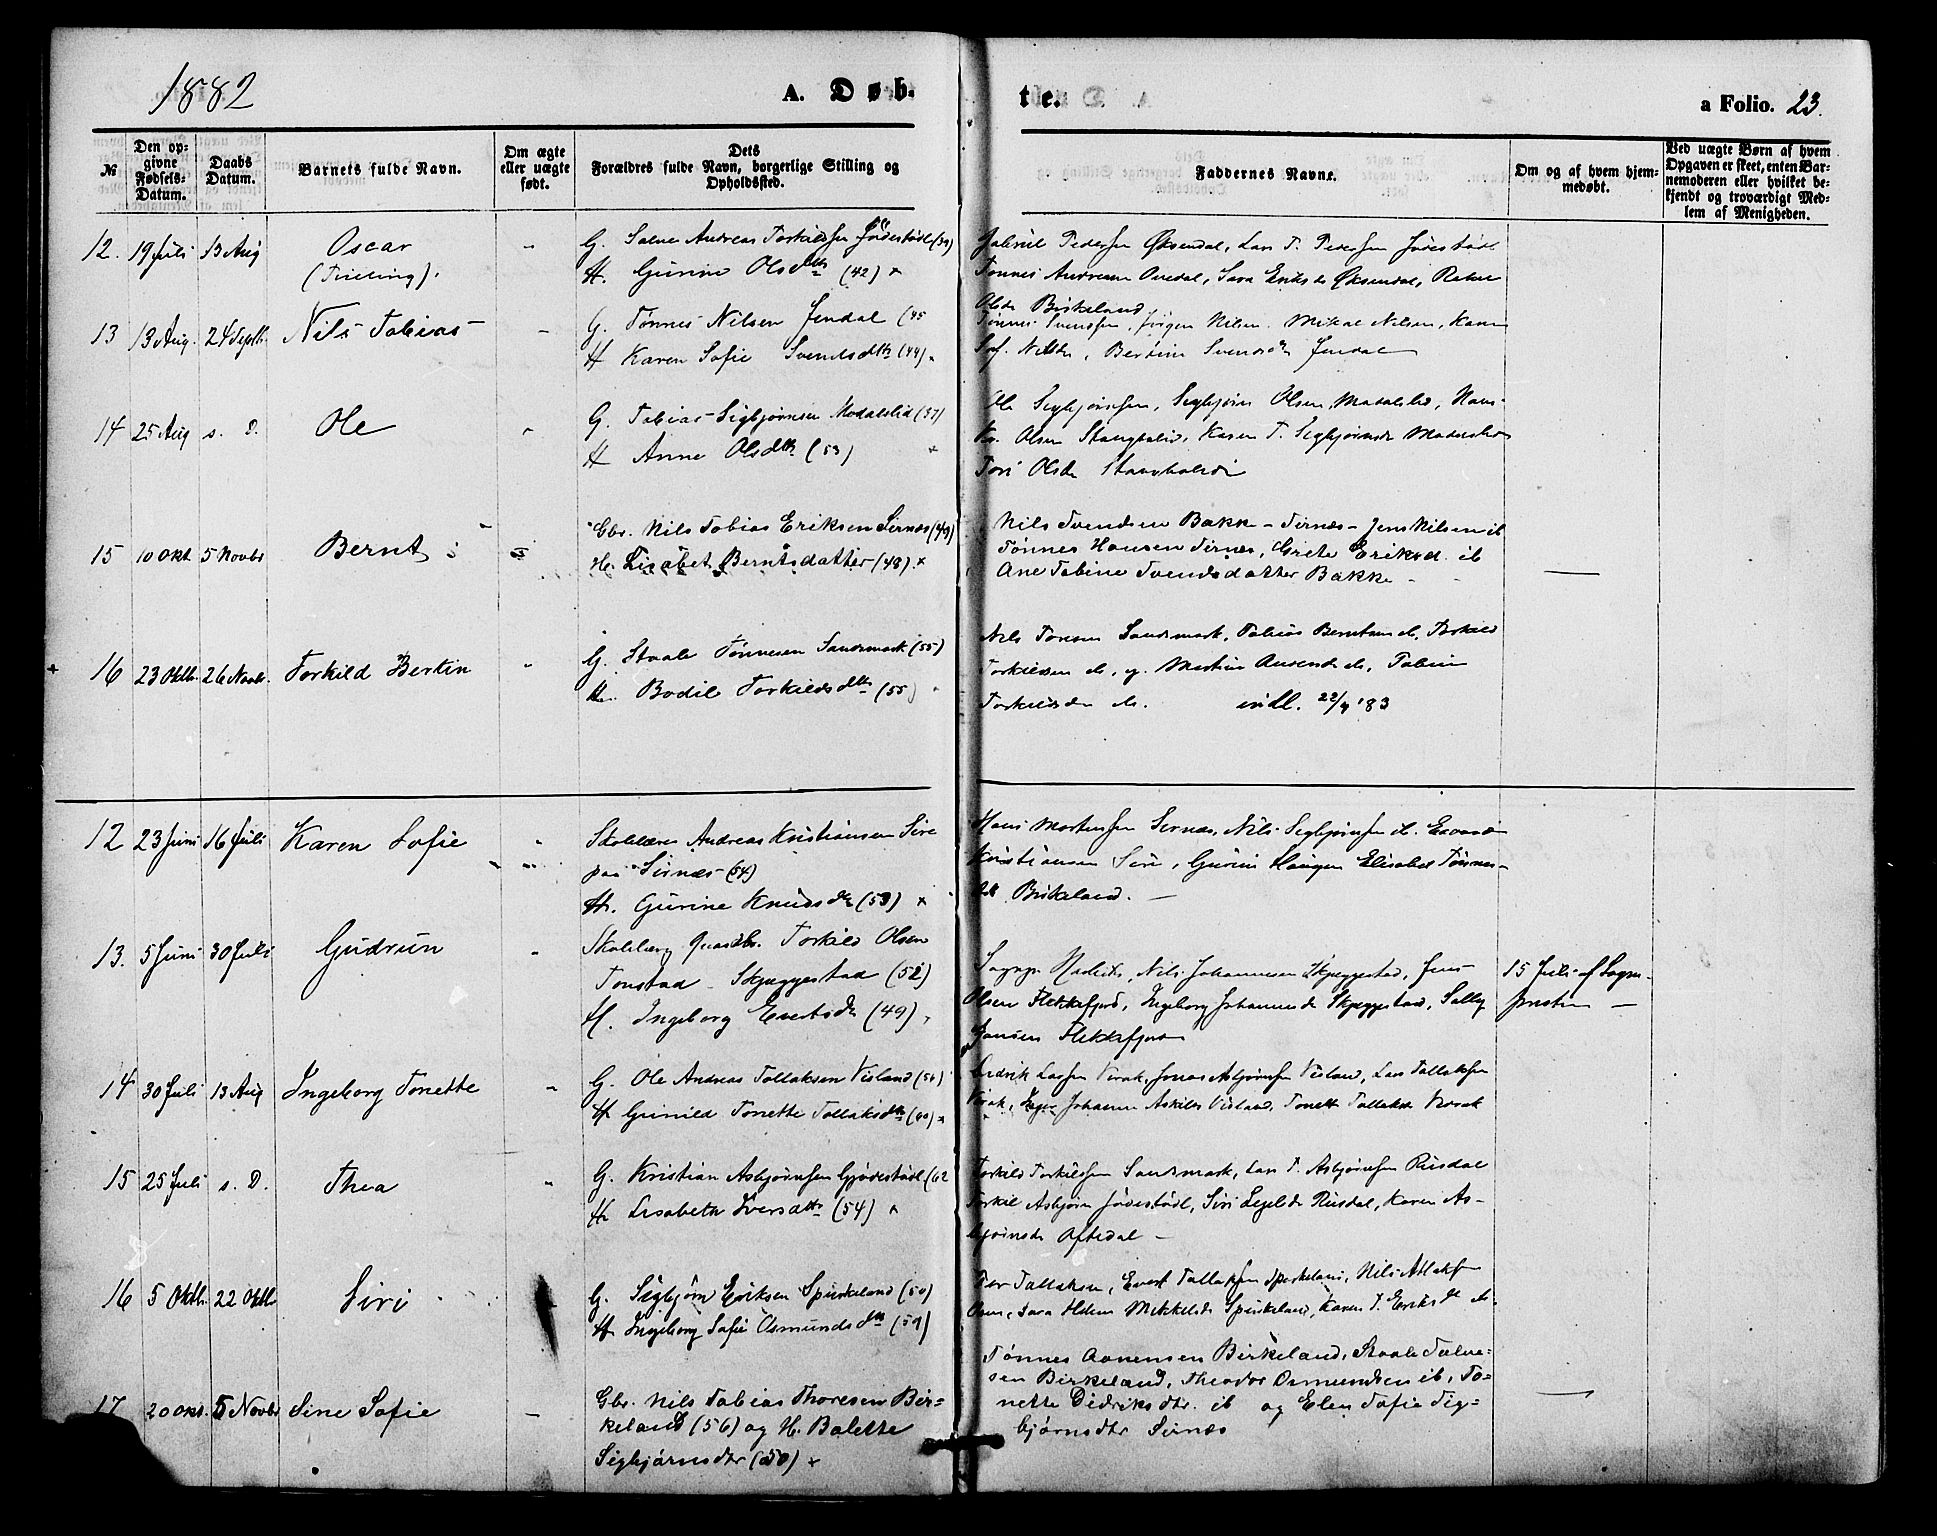 1882
A. Døb- te. a Folio. 23.
№
Den opgivne Fødsels-Datum.
Daabs Datum.
Barnets fulde Navn.
Om ægte eller uægte født.
Dets Forældres fulde Navn, borgerlige Stilling og Opholdssted.
Faddernes Navne.
Om og af hvem hjemmedøbt.
Ved uægte Børn af hvem Opgaven er skeet, enten Barnemoderen eller hvilket bekjendt og troværdigt Medlem af Menigheden.
12. 19 Juli 13 Aug Oscar
(Trilling).
G. Andreas (39)
H. Gurine Olsdtr (42) x
Gabriel Pedersen Øksendal, Lars T. Pedersen
Tønnes Andreas Ovedal, Sara Eriksd. Øksendal,
Olsdr Birkeland
13 13 Aug. 24 Septb. Nils Tobias
G. Tønnes Nilsen Jendal (45
H Karen Sofie Svendsdtr (44)
Tønnes Svendsen, Jørgen Nilsen. Mikal Nilsen, Karen
Sof. Nilsdr, Bertine Svendsdr Jendal
14 25 Aug s. D. Ole
G. Tobias Sigbjørnsen Modalslid (57)
H Anne Olsdtr (53)
Ole Sigbjørnsen, Sigbjørn Olsen Modalslid, Hans
Kr. Olsen, Karen T. Sigbjørnsdr
Tori Olsdr
15 10 Okt. 5 Novbr Bernt
Gbr. Nils Tobias Eriksen Sirnæs (49)
H. Lisabet Berntsdatter (48). x
Nils Svendsen Bakke - Sirnæs - Jens Nilsen ib
Tønnes Hansen Sirnæs, Grete Eriksd. ib
Ane Tobine Svendsdatter Bakke
16 23 Oktb. 26 Novbr. Torkild Bertin
G. Staale Tønnesen Sandsmark (55)
H. Bodil Torkildsdtr (55)
Nils Sandsmark, Tobias Berntsen do, Torkild
Torkildsen do, og Martin do, Tobine
Torkildsdr do. indl. 22/4 '83
12 23 Juni 16 Juli Karen Sofie
Skolelærer Andreas Kristiansen Sire
paa Sirnæs (54)
H. Gurine Knudsdr (53) x
Hans Mortensen Sirnæs, Nils Sigbjørnsen do.
Kristiansen Sire, Gurine Haugen Elisabet Tønnes-
dtr Birkeland.
13. 5 Juni 30 Juli Gudrun
Skolelærer Torkild Olsen
Tonstad Skjeggestad (52)
H. Ingeborg Evertsdr (49)
Nils Johannesen Skjeggestad, Jens
Olsen Flekkefjord, Ingeborg Johannesdr Skjeggestad, Sally
Jansen Flekkefjord
15 Juli af Sogne-
presten
14 30 Juli 13 Aug Ingeborg Tonette
G. Ole Andreas Tollaksen Visland (56)
H Gunild Tonette Tollaksdtr (60) x
Didrik Larsen Virak, Jonas Asbjørnsen Visland, Lars Tollaksen
Virak, Johanne Askildsd Visland, Tonette Tollaksdr Virak
15 25 Juli s. D. Thea
G. Kristian Asbjørnsen Gjødestødl (62
H Lisabeth Iversdtr (54) x
Torkild Torkildsen Sandsmark, Lars T. Asbjørnsen Risdal
Torkil Asbjørn, Siri Risdal, Karen As-
bjørnsdr Oftedal
16 5 Oktb. 22 Oktb Siri
G. Sigbjørn Eriksen Spirkeland (50)
H. Ingeborg Sofie Osmundsdtr (54)
Per Tollaksen, Evert Tollaksen Spirkeland, Nils Atlaksen
Osen, Sara Helene Mikkelsdr Spirkeland, Karen T. Eriksdr do
17 20 Okt. 5 Novbr Sine Sofie
Gbr. Nils Tobias Thoresen Bir-
keland (56) og H. Bolette
Sigbjørnsdtr (50) x
Tønnes Aanensen Birkeland. Staale Salve-
sen Birkeland, Theodor Osmundsen ib. To-
nette Didriksdtr. ib og Elen Sofie Sig-
bjørnsdtr Sirnæs